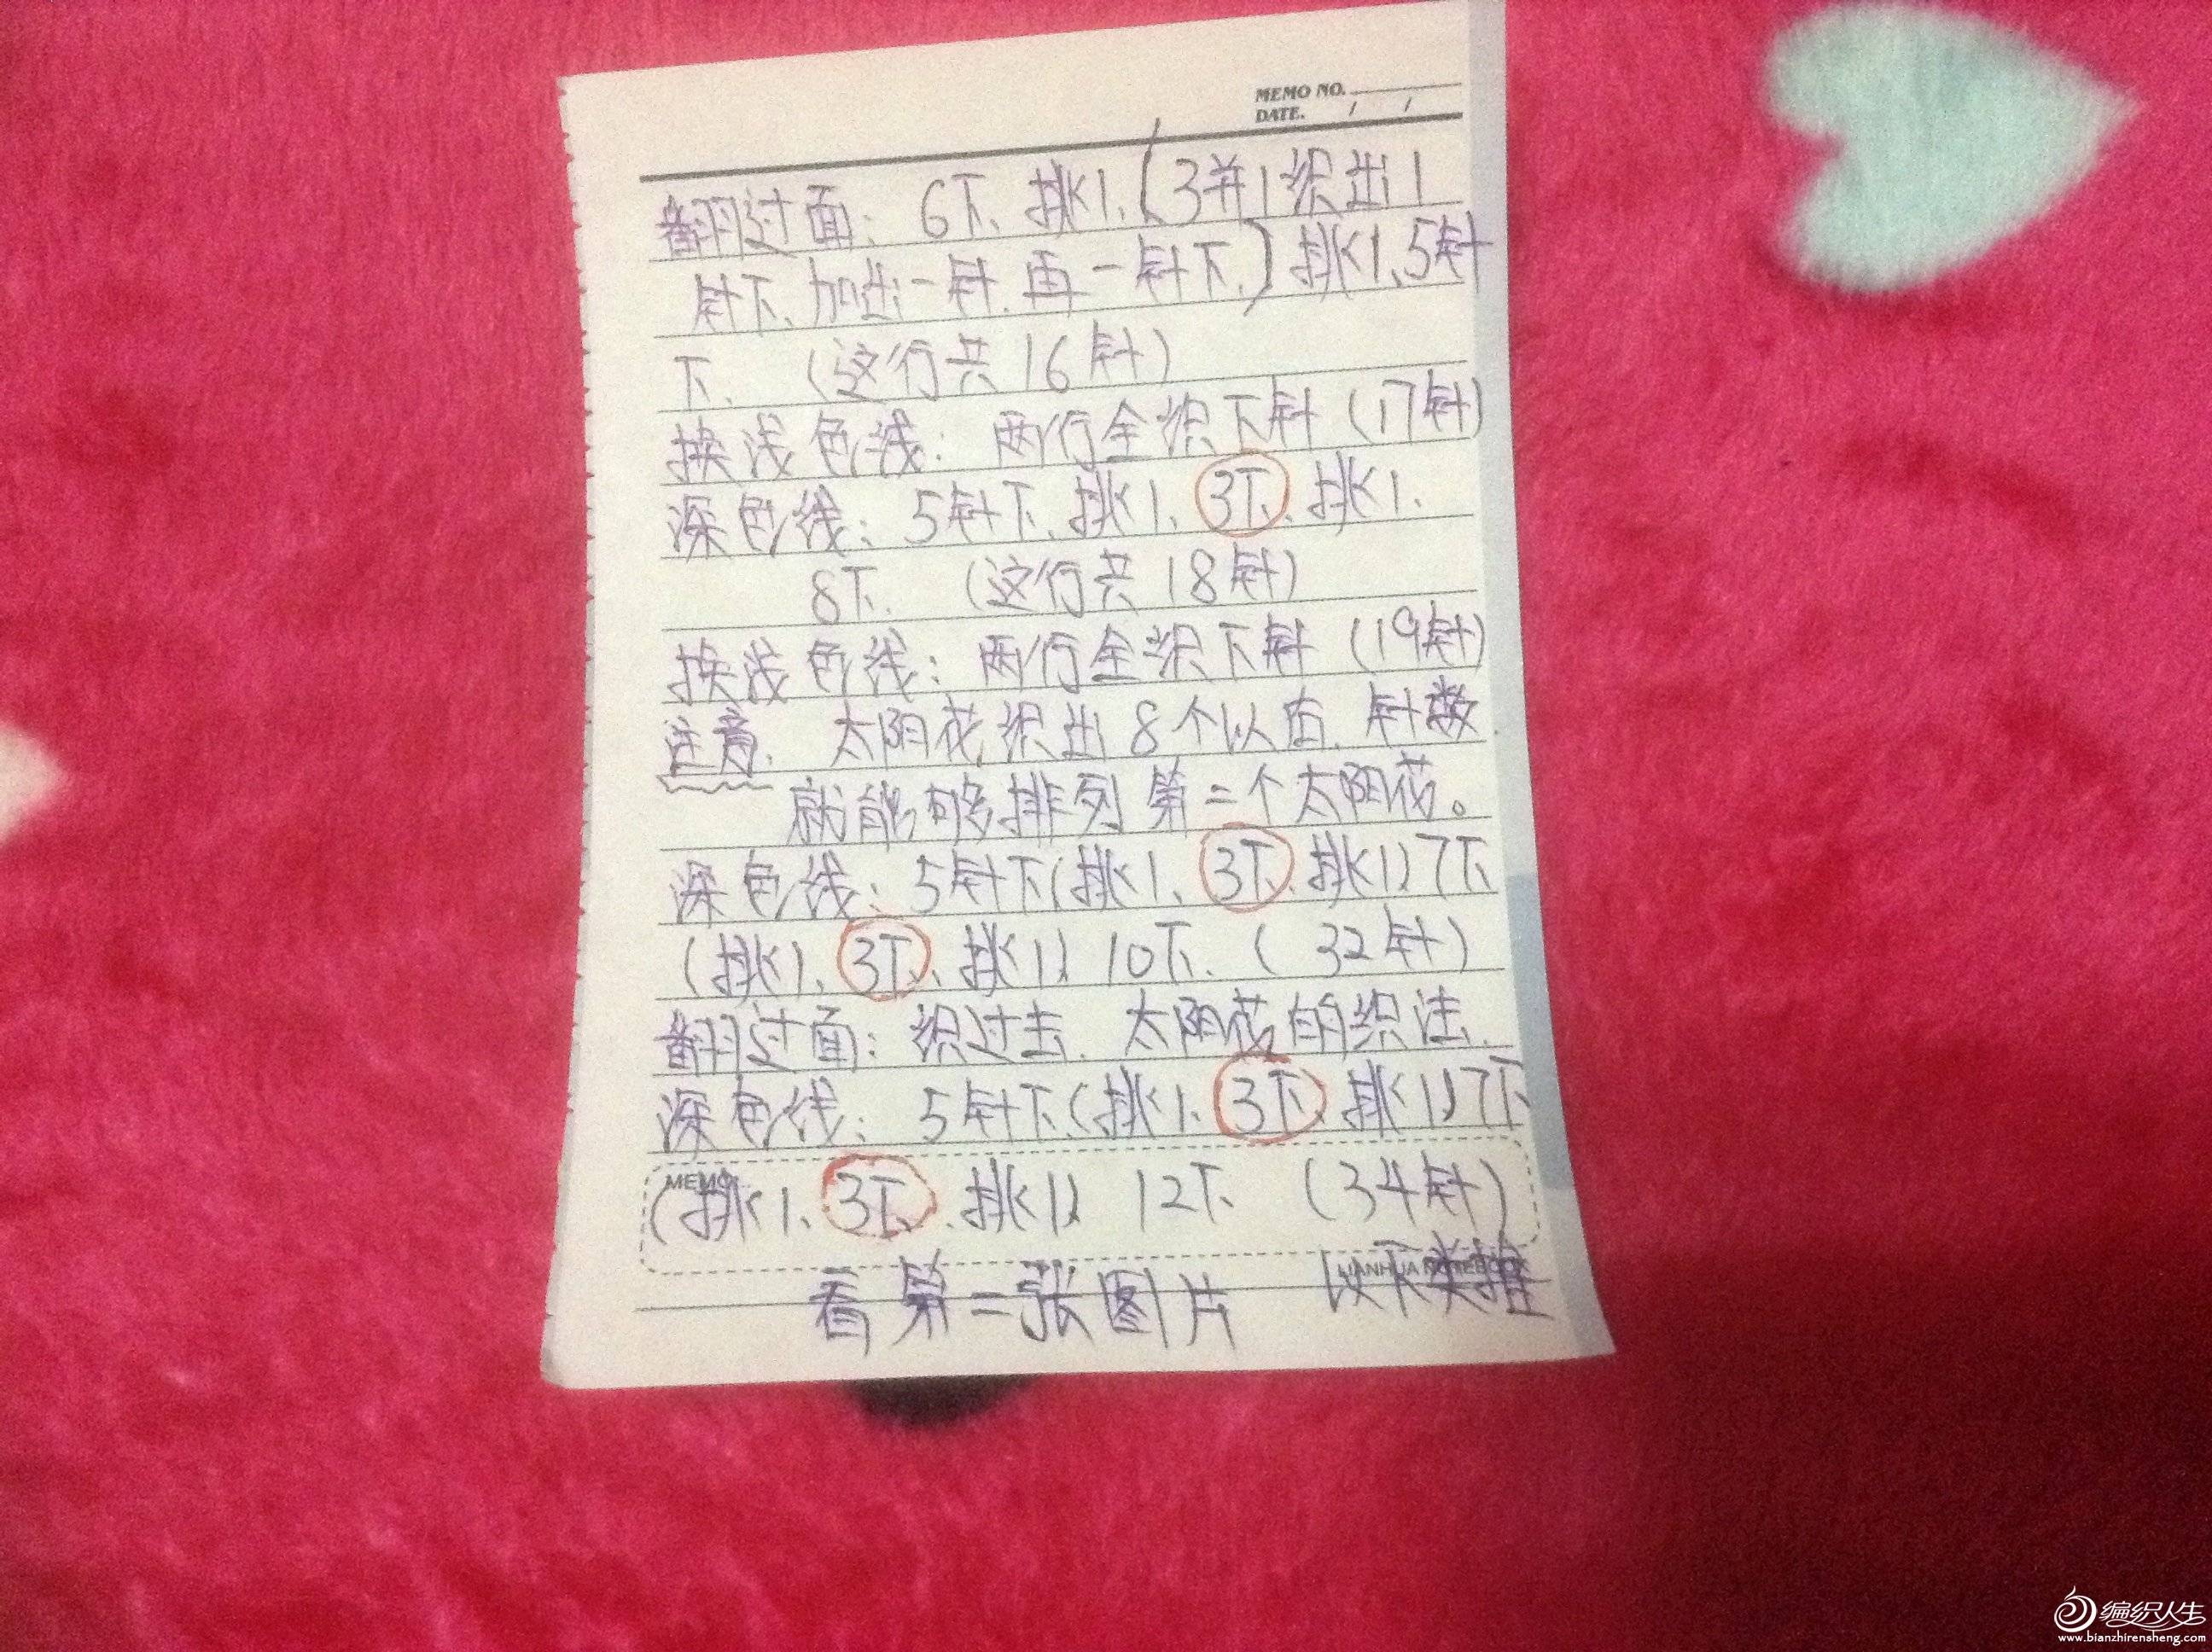 MEMO NO.
DATE. / /
翻过面：6下、挑1、(3并1织出1
针下、加出一针、再一针下、)挑1、5针
下、（这行共16针）
换浅色线：两行全织下针（17针）
深色线：5针下、挑1、3下、挑1、
8下、（这行共18针）
换浅色线：两行全织下针（19针）
注意、太阳花织出8个以后、针数
就能够排列第二个太阳花。
深色线：5针下(挑1、3下、挑1)、7下
(挑1、3下、挑1)、10下、（32针）
翻过面：织过去、太阳花的织法、
深色线：5针下、(挑1、3下、挑1)、7下
MEMO
(挑1、3下、挑1)、12下（34针）
LIANHUA NOTEBOOK
看第二张图片 以下类推
编织人生
www.bianzhirensheng.com